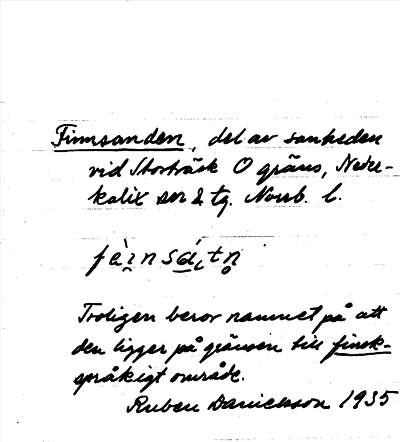 Finnsanden, del av sanheden
vid Storträsk O gräns, Neder-
kalix sn & tg. Norrb. l.
Troligen beror namnet på att
den ligger på gränsen till finsk-
språkigt område.
Ruben Danielsson 1935